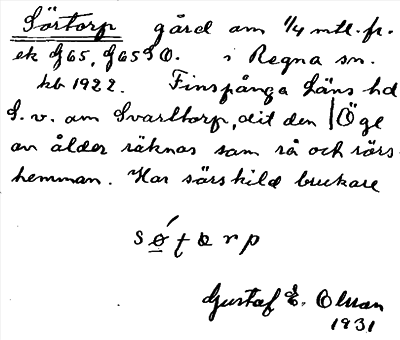 Sörtorp gård om 1/4 mtl. fr.
ek G65, G65SO. i Regna sn.
kb 1922. Finspånga Läns hd
S. v. om Svarttorp, dit den | Öge
av ålder räknas som rå och rörs
hemman. Har särskild brukare
søtorp
Gustaf E. Olsson
1931